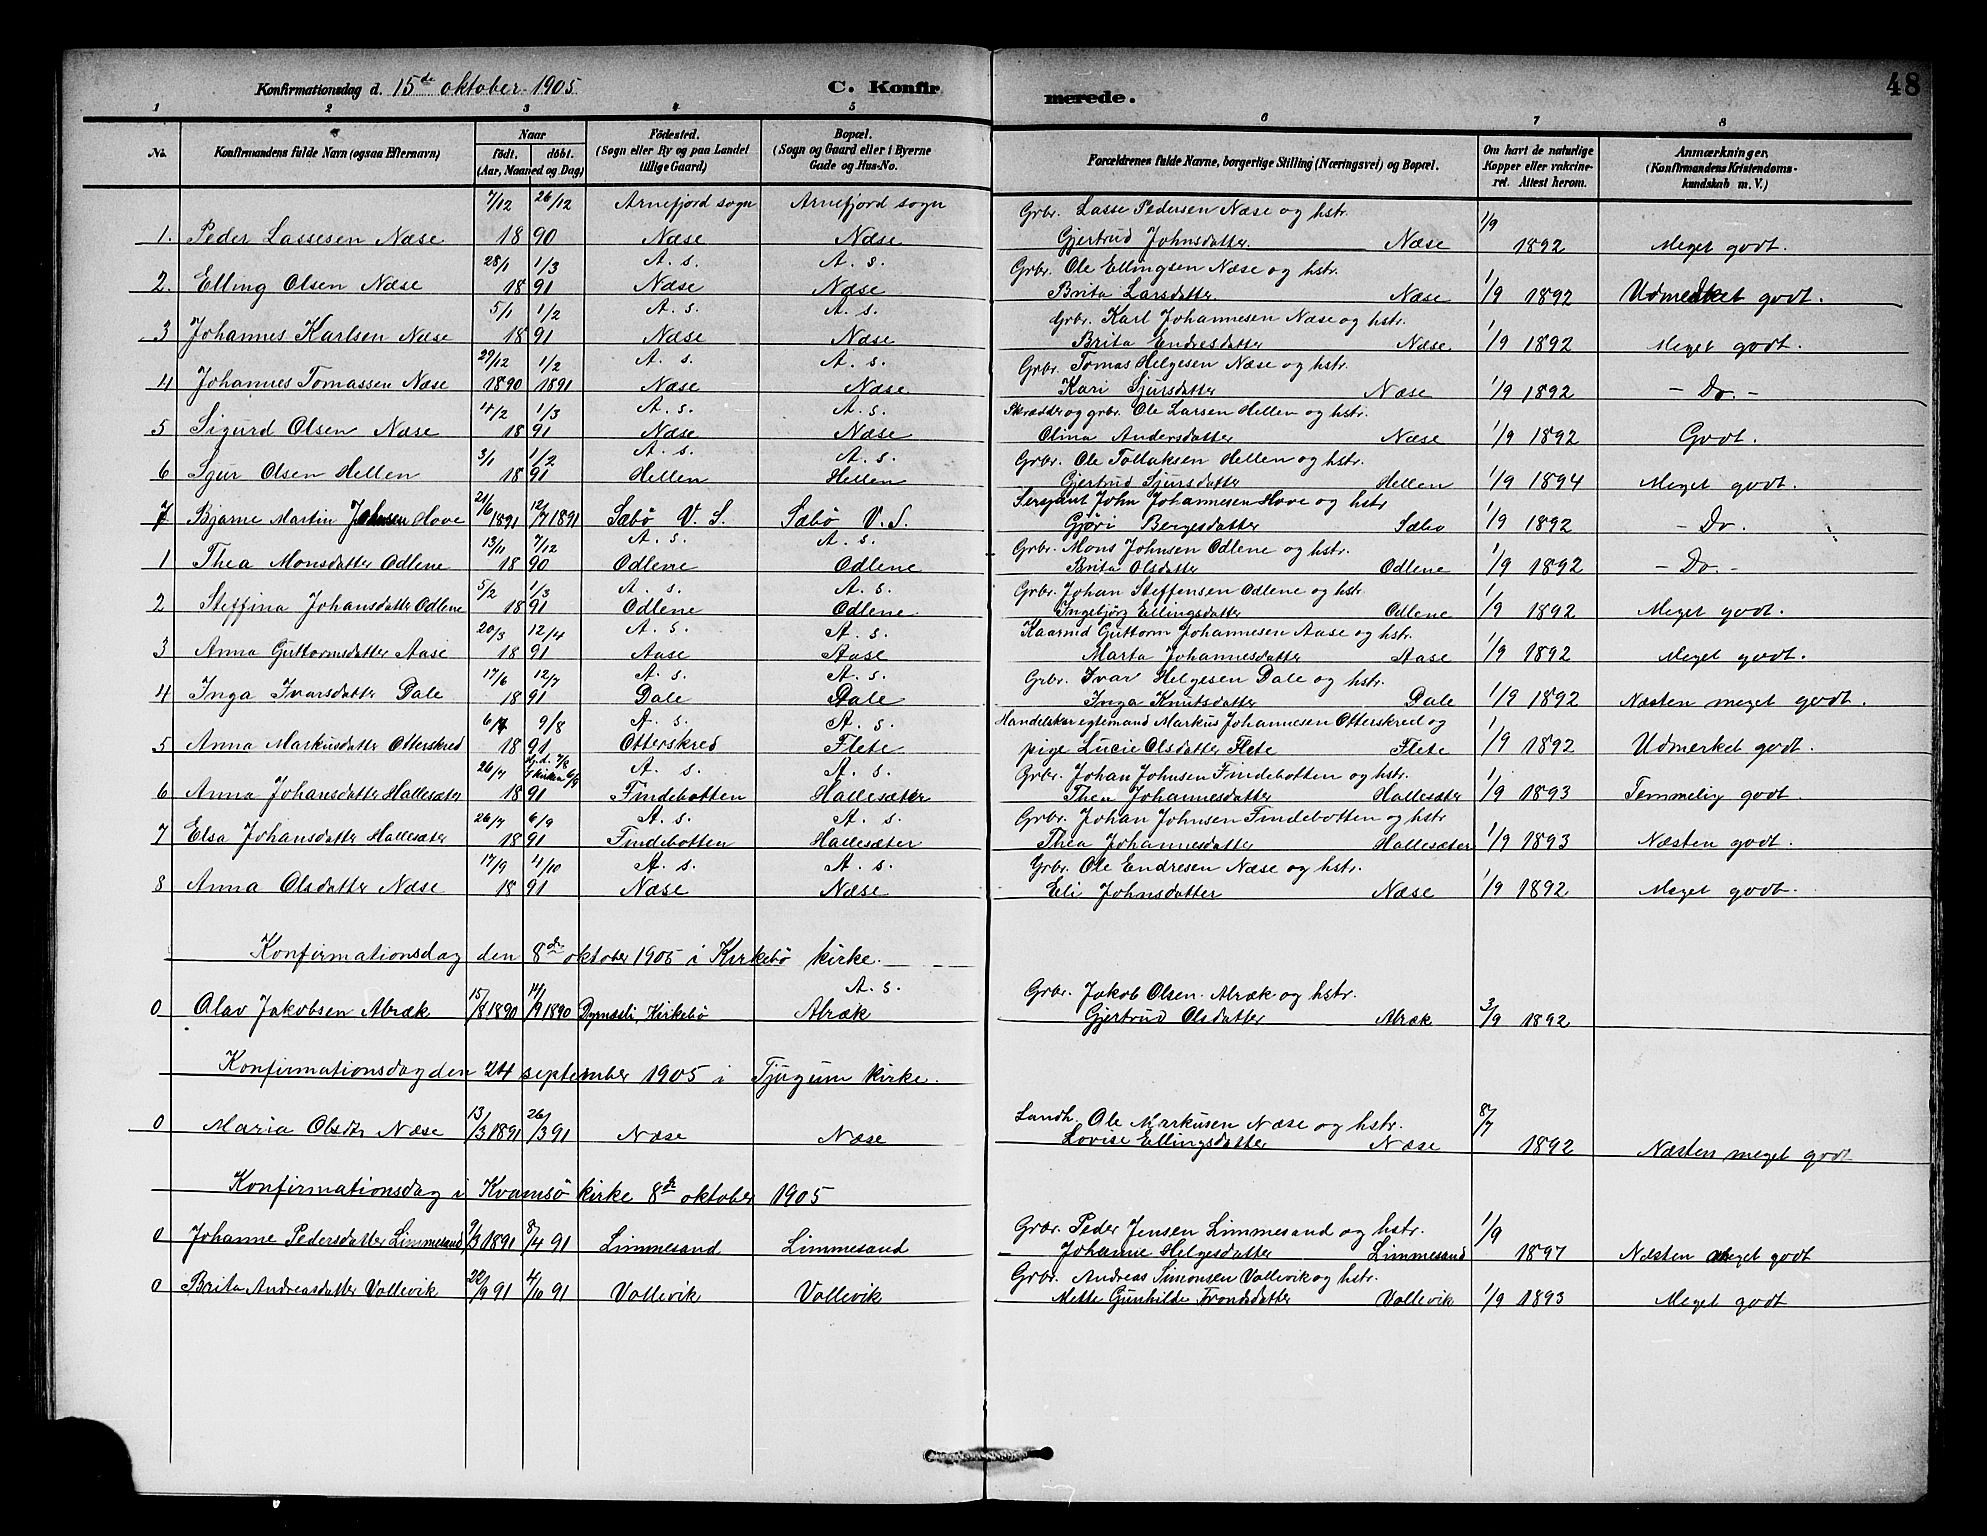 48
Konfirmationsdag d. 15de oktober 1905
C. Konfirmerede.
1 2 3 4 5 6 7 8
No. Konfirmandens fulde Navn (ogsaa Efternavn) Naar født. døbt. (Aar, Maaned og Dag) Födested. (Sogn eller By og paa Landet tillige Gaard) Bopæl. (Sogn og Gaard eller i Byerne Gade og Hus-No. Forældrenes fulde Navne, borgerlige Stilling (Næringsvei) og Bopæl. Om havt de naturlige Kopper eller vakcineret. Attest herom. Anmærkninger, (Konfirmandens Kristendomskundskab m. V.)
7/12 26/12 Arnefjord sogn Arnefjord sogn Grbr. Lasse Pedersen Næse og hstr. 1/9
1. Peder Lassesen Næse 18 90 Næse Næse Gjertrud Johnsdatter Næse 1892 Meget godt.
28/1 1/3 A. s. A. s. Grbr. Ole Ellingsen Næse og hstr.
2. Elling Olsen Næse 18 91 Næse Næse Brita Larsdatter Næse 1/9 1892 Udmerket godt.
5/1 1/2 A. s. A. s. Grbr. Karl Johannesen Næse og hstr.
3 Johannes Karlsen Næse 18 91 Næse Næse Brita Endresdatter Næse 1/9 1892 Meget godt.
29/12 1/2 A. s. A. s. Grbr. Tomas Helgesen Næse og hstr.
4 Johannes Tomassen Næse 1890 1891 Næse Næse Kari Sjursdatter Næse 1/9 1892 - Do. -
4/2 1/3 A. s. A. s. Skrædder og grbr. Ole Larsen Hellen og hstr.
5 Sigurd Olsen Næse 18 91 Næse Næse Olina Andersdatter Næse 1/9 1892 Godt.
3/1 1/2 A. s. A. s. Grbr. Ole Tollaksen Hellen og hstr.
6 Sjur Olsen Hellen 18 91 Hellen Hellen Gjertrud Sjursdatter Hellen 1/9 1894 Meget godt.
Sersjant John Johannesen Hove og hstr
7 Bjarne Martin Johnsen Hove 21/6 1891 12/7 1891 Sæbø V. S. Sæbø V. S. Gjøri Bergesdatter Sæbø 1/9 1892 - Do.
13/11 7/12 A. s. A. s. Grbr. Mons Johnsen Odlene og hstr.
1 Thea Monsdatter Odlene 18 90 Odlene Odlene Brita Olsdatter Odlene 1/9 1892 - Do. -
5/2 1/3 A. s. A. s. Grbr. Johan Steffensen Odlene og hstr.
2 Steffina Johansdatter Odlene 18 91 Odlene Odlene. Ingebjørg Ellingsdatter Odlene 1/9 1892 Meget godt.
20/3 12/4 A. s. A. s. Kaarmd Guttorm Johannesen Aase og hstr.
3 Anna Guttormsdatter Aase 18 91 Aase Aase Marta Johannesdatter Aase 1/9 1892 Meget godt.
17/6 12/7 A. s. A. s. Grbr. Ivar Helgesen Dale og hstr.
4 Inga Ivarsdatter Dale 18 91 Dale Dale Inga Knutsdatter Dale 1/9 1892 Næsten meget godt.
6/7 9/8 A. s. A. s. Handelskar egtemand Markus Johannesen Otterskred og
5 Anna Markusdatter Otterskred 18 91 Otterskred Flete pige Lucie Olsdatter Flete Flete 1/9 1892 Udmerket godt.
26/7 hj.d. 7/8 i kirken 6/9 A. s. A. s. Grbr. Johan Johnsen Findebotten og hstr.
6 Anna Johansdatter Hallesæter 18 91 Findebotten Hallesæter Thea Johannesdatter Hallesæter 1/9 1893 Temmelig godt
26/7 6/9 A. s. A. s. Grbr. Johan Johnsen Findebotten og hstr
7 Elsa Johansdatter Hallesæter 18 91 Findebotten Hallesæter Thea Johannesdatter Hallesæter 1/9 1893 Næsten godt.
17/9 4/10 A. s. A. s. Grbr. Ole Endresen Næse og hstr.
8 Anna Olsdatter Næse 18 91 Næse Næse Eli Johnsdatter Næse 1/9 1892 Meget godt.
Konfirmationsdag den 8de oktober 1905 i Kirkebø kirke.
A. s. Grbr. Jakob Olsen Alræk og hstr.
0 Olav Jakobsen Alræk 15/8 1890 14/9 1890 Kirkebø Alræk Gjertrud Olsdatter Alræk 3/9 1892
Konfirmationsdag den 24 september 1905 i Tjugum kirke.
Landh. Ole Markusen Næse og hstr. 8/7
0 Maria Olsdtr Næse 13/3 1891 26/3 91 Næse Næse Lovise Ellingsdatter Næse 1892 Næsten meget godt
Konfirmationsdag i Kvamsø kirke 8de oktober 1905
Grbr. Peder Jensen Limmesand og hstr. 1/9
0 Johanne Pedersdatter Limmesand 9/3 1891 8/4 91 Limmesand Limmesand Johanne Helgesdatter Limmesand 1897 Næsten meget godt
Grbr. Andreas Simonsen Vallevik og hstr.
0 Brita Andreasdatter Vallevik 22/9 91 4/10 91 Vallevik Vallevik Mette Gunhilde Trondsdatter Vallevik 1/9 1893 Meget godt